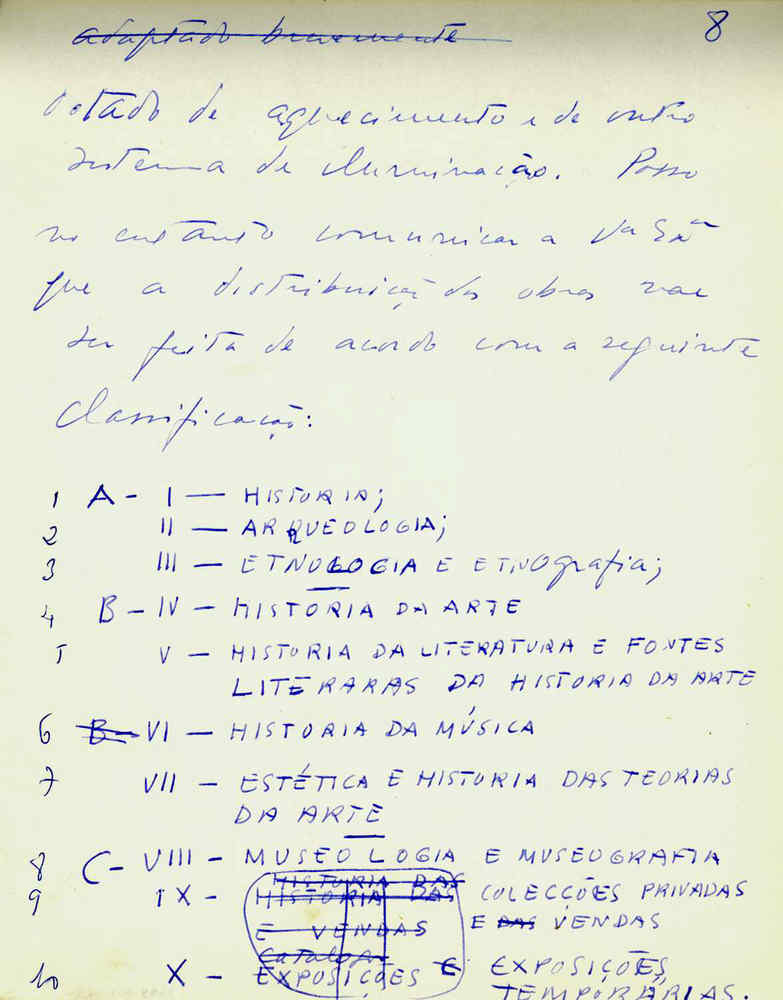 adaptado brevemente 8
dotado de aquecimento e de outro
sistema de iluminação. Posso
no entanto comunicar a Vª Exª
que a distribuição das obras vae
ser feita de acordo com a seguinte
classificação:
1 A - I — HISTORIA;
2 II — ARQUEOLOGIA;
3 III — ETNOLOGIA E ETNOgrafia;
4 B - IV - HISTÓRIA DA ARTE
5 V - HISTORIA DA LITERATURA E FONTES
LITERARAS DA HISTORIA DA ARTE
6 B - VI - HISTORIA DA MÚSICA
7 VII - ESTÉTICA E HISTORIA DAS TEORIAS
DA ARTE
8 C - VIII - MUSEOLOGIA E MUSEOGRAFIA
HISTORIA DAS
9 IX - HISTORIA DAS COLECÇÕES PRIVADAS
E VENDAS E DAS VENDAS
10 X - EXPOSIÇÕES E EXPOSIÇÕES
TEMPORÁRIAS.